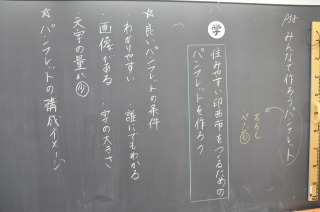 P98 みんなで作ろうパンフレット
学
住みやすい印西市をつくるための
パンフレットを作ろう
☆良いパンフレットの条件
・わかりやすい ・誰にでもわかる
・画像がある ・字の大きさ
・文字の量が少
☆パンフレットの構成イメージ